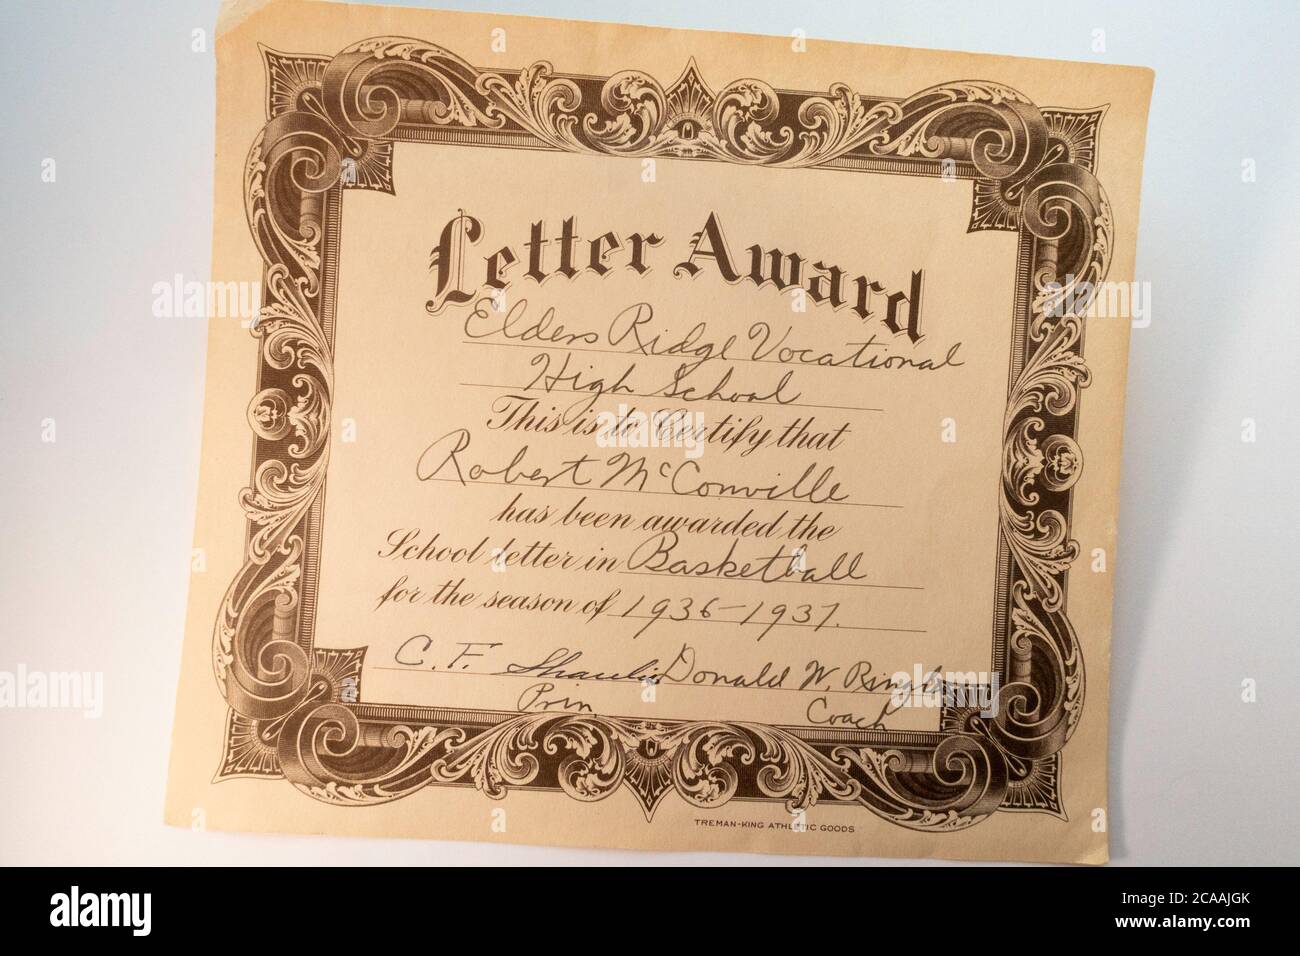 Letter Award
Elders Ridge Vocational
High School
This is to Certify that
Robert McConville
has been awarded the
School letter in Basketball
for the season of 1936-1937.
C. F. Donald W.
Prin Coach
TREMAN-KING ATHLETIC GOODS
alamy
Image ID: 2CAAJGK
www.alamy.com